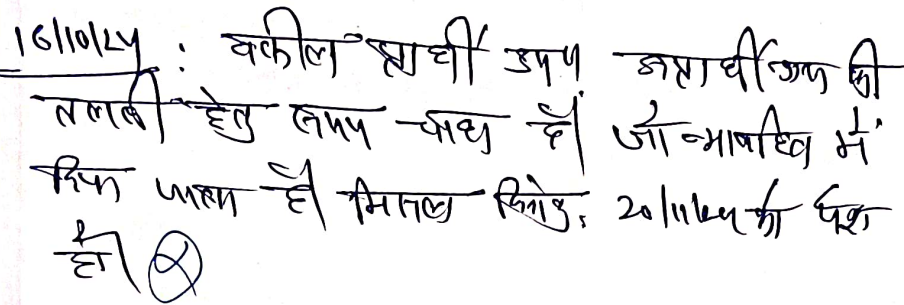 16/10/24 : वकील प्रार्थी उप० अप्रार्थीगण की
तलबी हेतु समय चाहा है। जो न्यायहित में
दिया जाता है। मिसल दिनांक: 20/11/24 को पेश
हो।